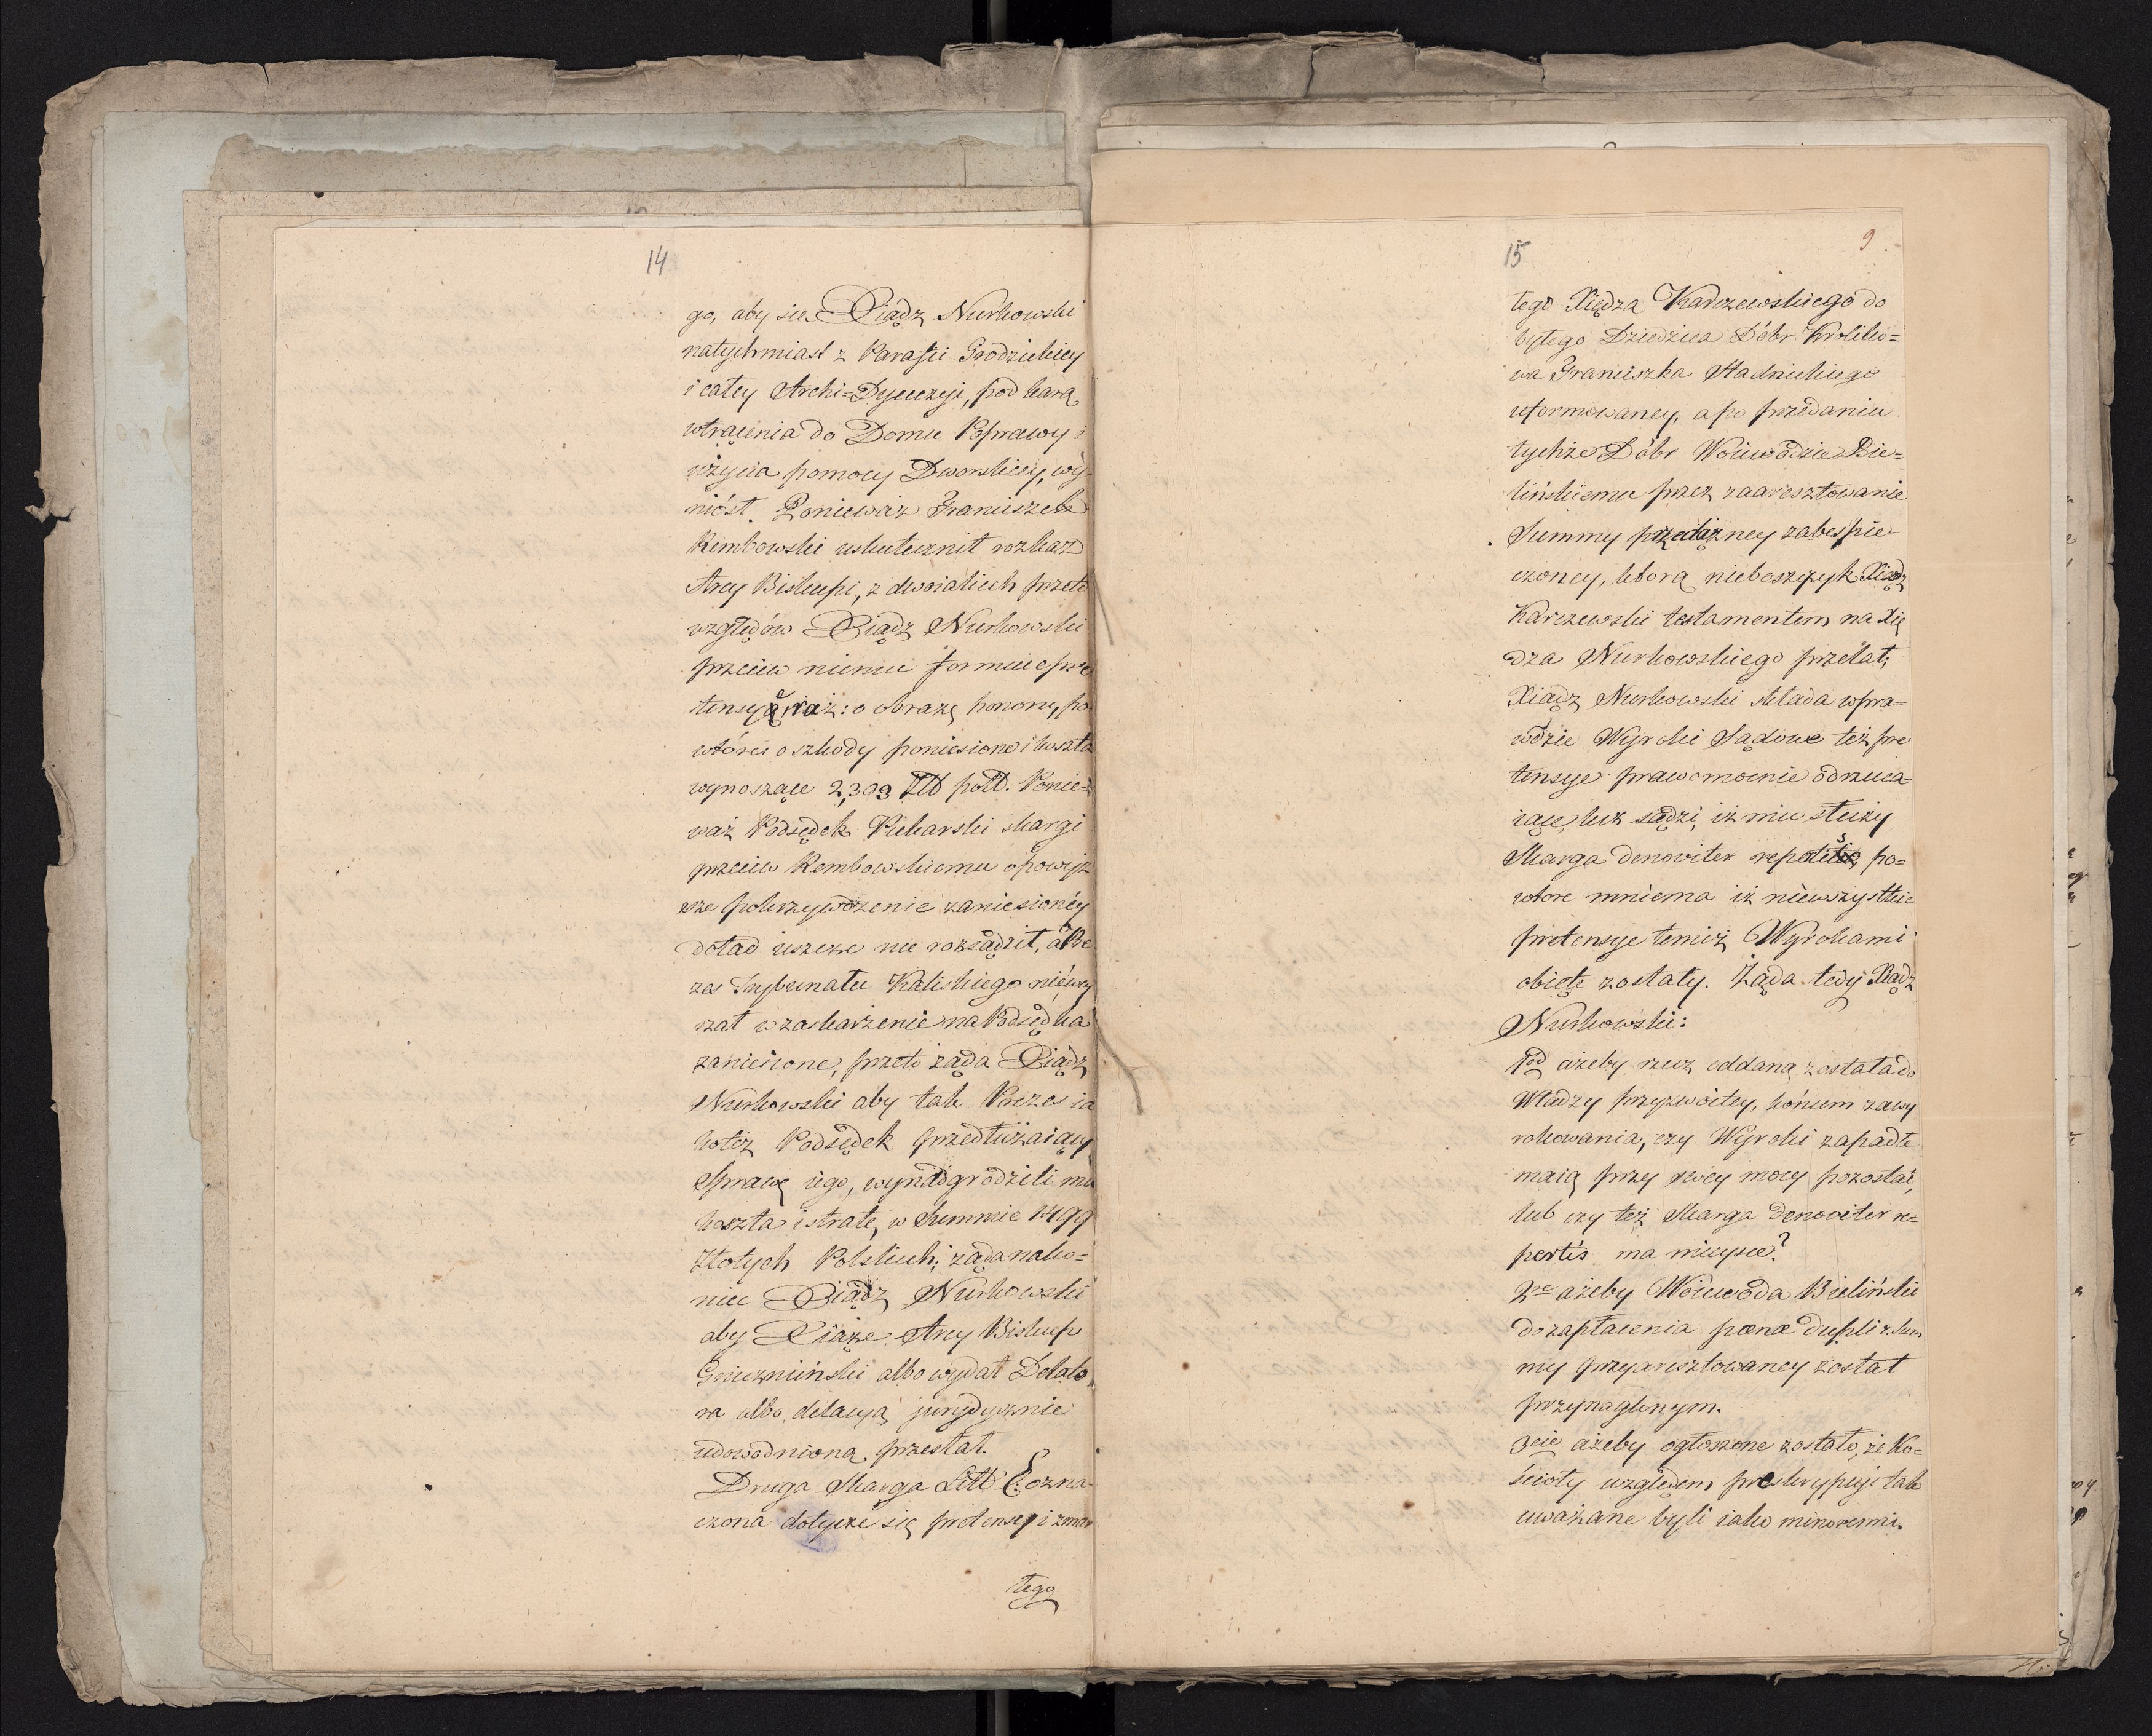 14
go, aby się Xiądz Nurkowski
natychmiast z Parafii Grodzickiey
i całey Archi=Dyecezyi, pod karą
wtrącenia do Domu Poprawy i
użycia pomocy Dworskiey, wy-
niósł. Ponieważ Franciszek
Rembowski uskutecznił rozkaz
Arcy Biskupi, z dwoiakich przeto
względów Xiądz Nurkowski
przeciw niemu formuie pre
tensyą, raz: o obrazę honoru, po
wtóre: o szkody poniesione i koszta
wynoszące 2,303 Złł poll. Ponie-
waż Podsędek Piekarski skargi
przeciw Rembowskiemu o powyż
sze pokrzywdzenie zaniesionéy
dotąd ieszcze nie rozsądził, a Pre
zes Trybunału Kaliskiego niewy
rzał w zaskarżenie na Podsędka
zaniesione, przeto żąda Xiądz
Nurkowski aby tak Prezes ia
koteż Podsędek przedłużaiący
Sprawę iego, wynadgrodzili mu
koszta i stratę, w Summie 1499
Złotych Polskich; żąda nako=
niec Xiądz Nurkowski
aby Xiąże Arcy Biskup
Gnieznieński albo wydał Delato
ra albo delacyą jurydycznie
udowodnioną przesłał.
Druga Skarga Litt: E. ozna-
czona dotycze się pretensyi zmar
tego
15
9.
tego Xiędza Karczewskiego do
byłego Dziedzica Dóbr Króliko=
wa Franciszka Stadnickiego
uformowaney, a po przedaniu
tychże Dóbr Woiewodzie Bie=
lińskiemu przez zaaresztowanie
Summy przedażney zabespie-
czoney, którą nieboszczyk Xiądz
Karczewski testamentem na Xię
dza Nurkowskiego przelał;
Xiądz Nurkowski składa wpra=
wdzie Wyroki Sądowe też pre
tensye prawomocnie odrzuca-
iące, lecz sądzi, iż mu służy
Skarga denoviter repertis, po=
wtóre mniema iż niewszystkie
pretensye temiż Wyrokami
obięte zostały. Żąda tedy Xiądz
Nurkowski:
1od ażeby rzecz oddaną została do
Władzy przyzwoitey, końcem zawy
rokowania, czy Wyroki zapadłe
maią przy swéy mocy pozostać,
lub czy też Skarga denoviter re=
pertis ma mieysce?
2re ażeby Woiewoda Bieliński
do zapłacenia pœnæ dupli z Sum
my przyaresztowaney został
przynaglonym.
3cie ażeby ogłoszone zostało, że Ko=
ścioły względem preskrypcyi tak
uważane byli iako minorenni.